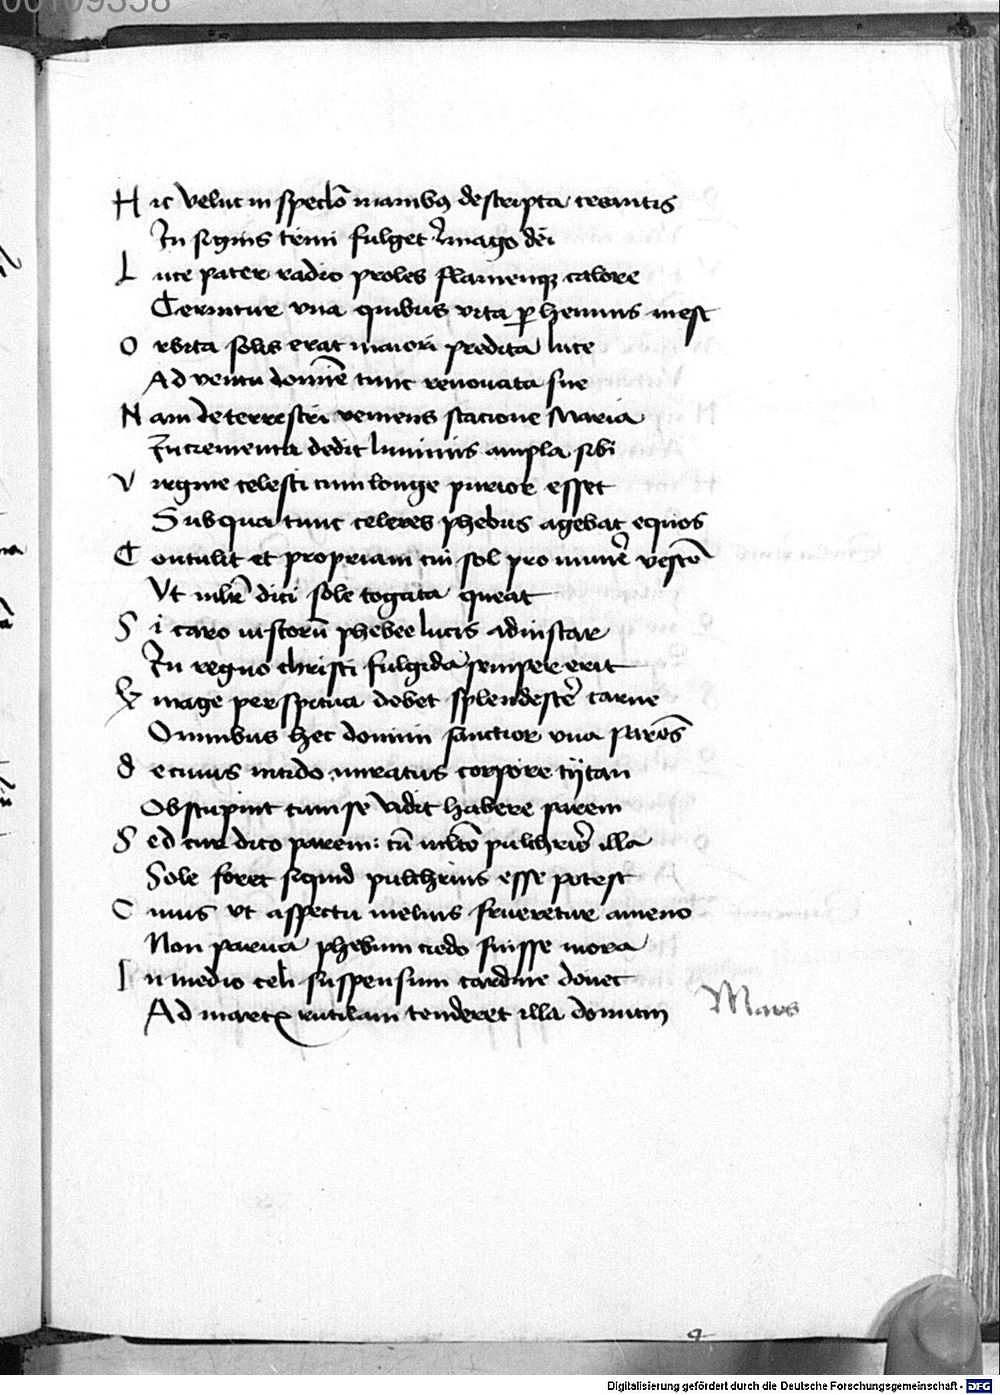 00109358
Hic velut in speclo manibus descripta creantis
In signis terni fulget ymago dei
Luce pater radio proles flamenque calore
Cernitur vna quibus vita perhennis inest
Orbita solis erat maiori predita luce
Ad ventu domine tunc renouata sue
Nam de terrestri veniens stacione Maria
Incrementa dedit luminis ampla sibi
Virgine celesti cum longe purior esset
Sub qua tunc celeres phebus agebat equos
Contulit et propriam cui sol pro munere vestem
Vt mulier dici sole togata queat
Si caro iustorum phebee lucis ad instar
In regno christi fulgida semper erit
Et mage perspicua debet splendescere carne
Omnibus hec domini sanctior vna parens
decuius nitido miratus corpore tytan
Obstupuit cum se vidit habere parem
Sed cur dico parem: cum multo pulchrior illa
Sole foret siquid pulchrius esse potest
Cuius vt aspectu melius frueretur ameno
Non parua phebum credo fuisse mora
In medio celi suspensum cardine donec
Ad martis rutilam tenderet illa domum
Mars
Digitalisierung gefördert durch die Deutsche Forschungsgemeinschaft - DFG